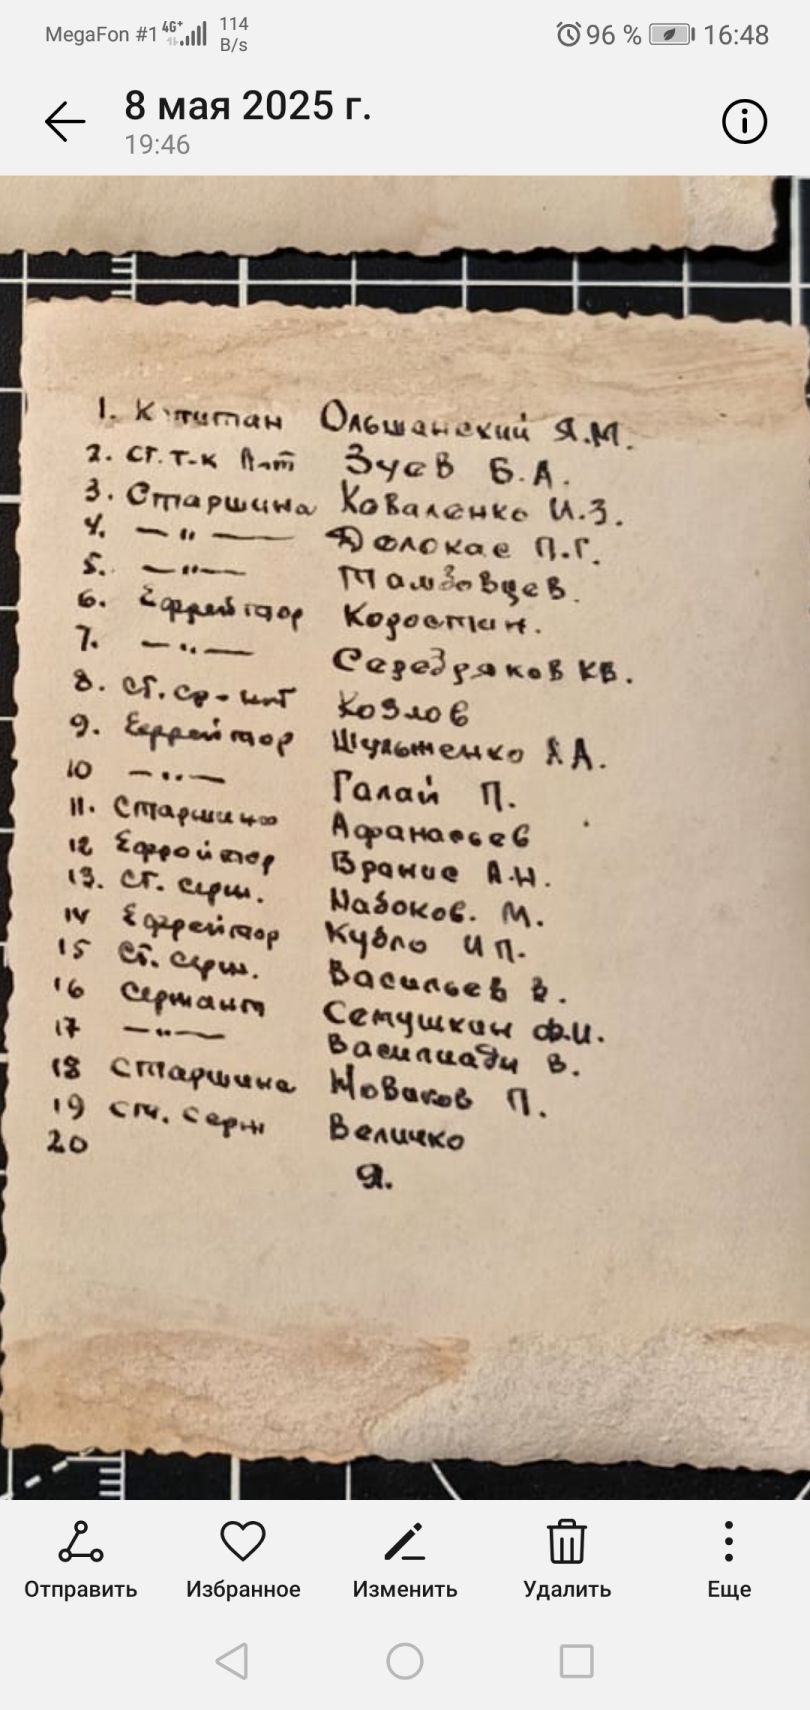 MegaFon #1 4G+ 114 B/s 96 % 16:48
8 мая 2025 г.
19:46
1. Капитан Ольшанский Я.М.
2. ст. т-к Зуев Б.А.
3. Старшина Коваленко И.З.
4. —"— П.Г.
5. —"— Тамбовцев.
6. Ефрейтор Коростин.
7. —"— Серебряков КВ.
8. ст. Козлов
9. Ефрейтор Шульженко А.
10 —"— Галай П.
11. Старшина Афанасьев
12 Ефрейтор А.Н.
13. ст. серж. Набоков. М.
14 Ефрейтор Кубло И П.
15 ст. серж. Васильев В.
16 Сержант Семушкин Ф.И.
17 —"— Василиади В.
18 Старшина Новаков П.
19 ст. серж Величко
20 Я.
Отправить Избранное Изменить Удалить Еще